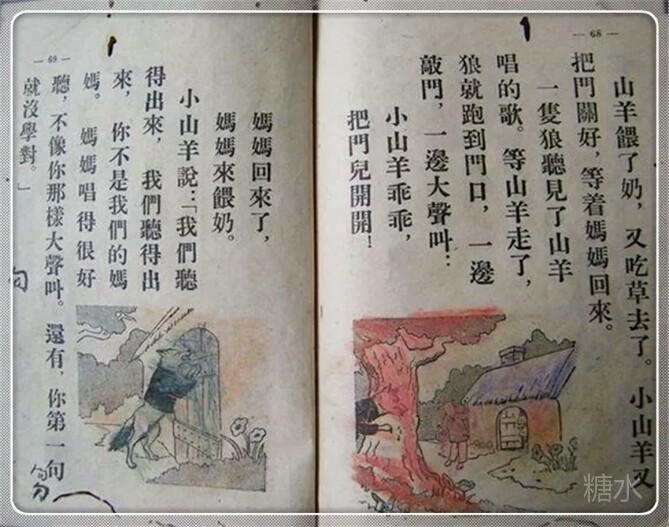 — 68 —
山羊餵了奶，又吃草去了。小山羊又
把門關好，等着媽媽回來。
一隻狼聽見了山羊
唱的歌。等山羊走了，
狼就跑到門口，一邊
敲門，一邊大聲叫：
小山羊乖乖，
把門兒開開！
— 69 —
媽媽回來了，
媽媽來餵奶。
小山羊說：「我們聽
得出來，我們聽得出
來，你不是我們的媽
媽。媽媽唱得很好
聽，不像你那樣大聲叫。還有，你第一句
就沒學對。」
句
糖水